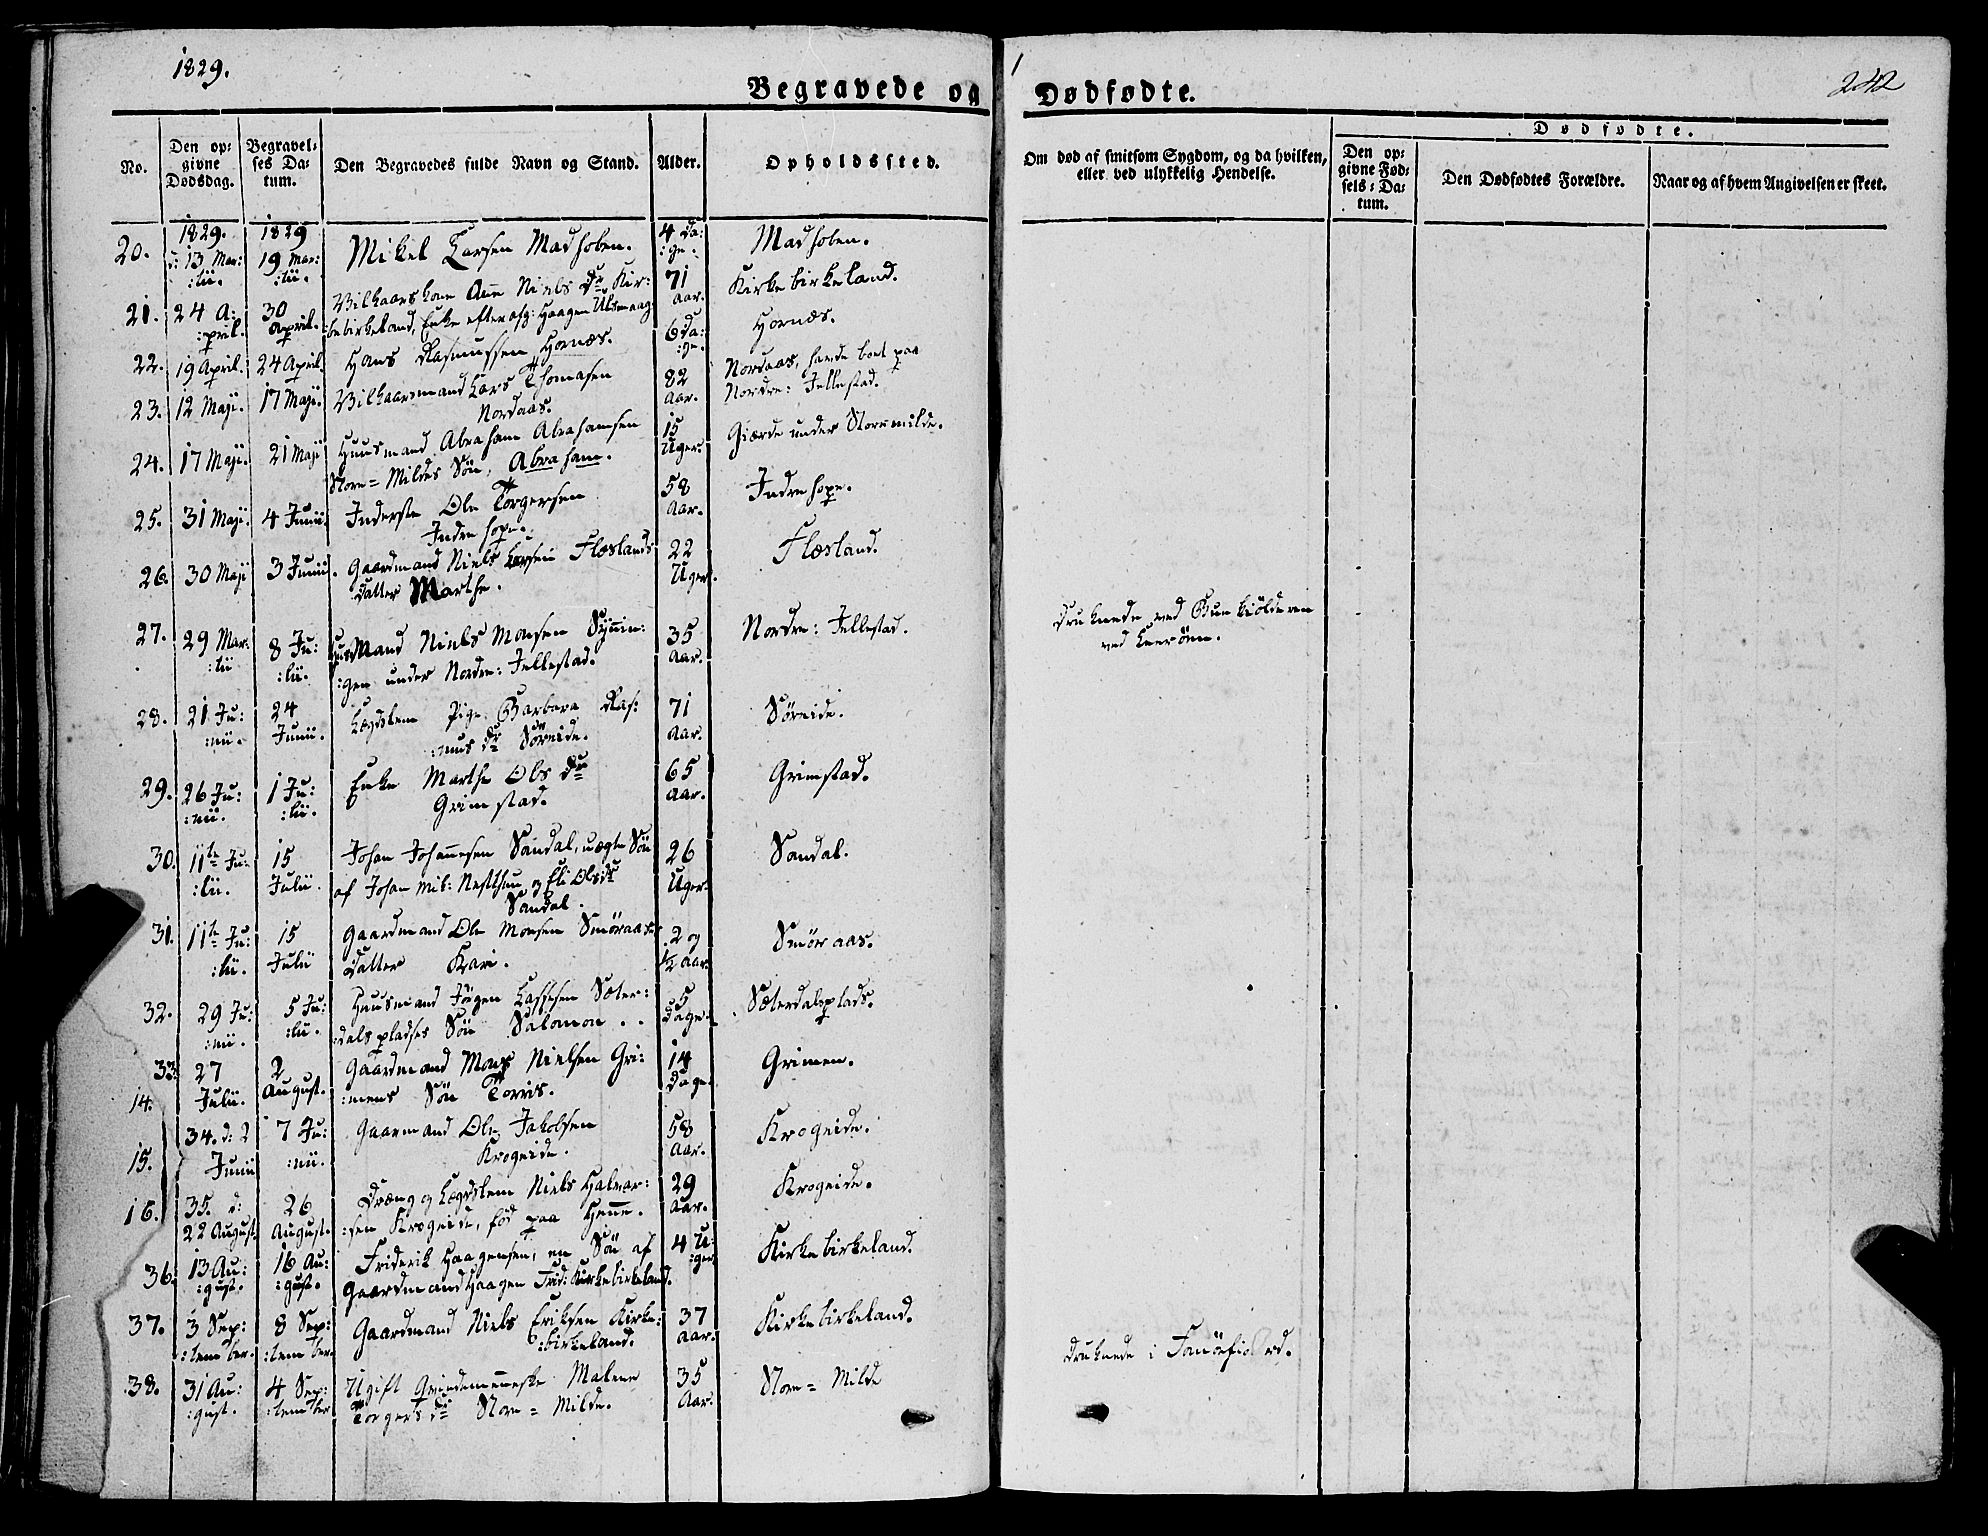 1829.
Begravede og Dødfødte.
242
No.
Den op-
givne
Dødsdag.
Begravel-
ses Da-
tum.
Den Begravedes fulde Navn og Stand.
Alder.
Opholdssted.
Om død af smitsom Sygdom, og da hvilken,
eller ved ulykkelig Hendelse.
Dødfødte.
Den op-
givne Fød-
sels-Da-
tum.
Den Dødfødtes Forældre.
Naar og af hvem Angivelsen er skeet.
20. 1829. d: 13 Mar: :tii. 1829 19 Mar: :tii. Mikel Larsen Madhoben. 4 Da: :ge. Madhoben.
21. 24 A: :pril. 30 April. Vilkaarskone Ane Niels Dr. Kir:
:kebirkeland, Enke efter afg: Haagen 71 Aar. Kirkebirkeland.
22. 19 April. 24 April. Hans Rasmussen Hornæs. 6 Da: :ge. Hornæs.
23. 12 Maji. 17 Maji. Vilkaarsmand Lars Thomasen
Nordaas. 82 Aar. Nordaas, havde boet paa
Nordre: Jellestad.
24. 17 Maji. 21 Maji Huusmand Abraham Abrahamsen
Store = Mildes Søn, Abraham. 15 Uger. Giærde under Storemilde.
25. 31 Maji. 4 Junii. Inderste Ole Torgersen
Indrehope. 58 Aar. Indrehope.
26. 30 Maji 3 Junii. Gaardmand Niels Larsen Flæslands
Datter Marthe. 22 Uger. Flæsland.
27. 29 Mar: :tii 8 Ju: :lii. Huusmand Niels Monsen
:gen under Nordre: Jellestad. 35 Aar. Nordre: Jellestad. Druknede ved
ved Leerøen.
28. 21 Ju: :nii. 24 Junii. Lægdslem Pige Barbara Ras:
:mus Dr Søreide. 71 Aar. Søreide.
29. 26 Ju: :nii. 1 Ju: :lii. Enke Marthe Ols Dr
Grimstad. 65 Aar. Grimstad.
30. 11te Ju: :lii. 15 Julii. Johan Johanesen Sandal, uægte Søn
af Johan Nils: Nesttun og Eli Olsdr
Sandal. 26 Uger. Sandal.
31. 11te Ju: :lii. 15 Julii Gaardmand Ole Monsen Smøraas
Datter Kari. 2 og ½ Aar. Smøraas.
32. 29 Ju: :nii. 5 Ju: :lii. Huusmand Jørgen Lassesen Sæter:
:dalspladses Søn Salomon.. 5 Dage. Sæterdalsplads.
33. 27 Julii. 2 August. Gaardmand Mons Nielsen Gri:
:mens Søn Torris. 14 Dage. Grimen.
14.
34. d: 2 Junii 7 Ju: :nii. Gaarmand Ole Jakobsen
Krogeide. 58 Aar. Krogeide.
15.
35. d: 22 August. 26 August. Dræng og Lægdslem Niels Halvor:
:sen Krogeide, fød paa Hene. 29 Aar. Krogeide.
16.
36. 13 Au: :gust. 16 Au: :gust. Friderik Haagensen, en Søn af
Gaardmand Haagen Frid: Kirkebirkeland. 4 U: :ger Kirkebirkeland.
37. 3 Sep: :tember. 8 Sep: :tember. Gaardmand Niels Eriksen Kirke:
:birkeland. 37 Aar. Kirkebirkeland.
38. 31 Au: :gust. 4 Sep: :tember Ugift Qvindemeneske Malene
Torgersdr Store = Milde. 35 Aar. Store = Milde Druknede i Fanøefiord.